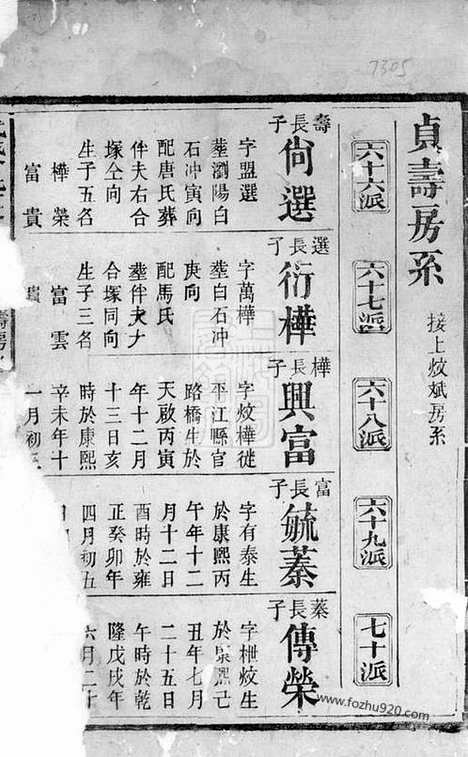 7305
貞壽房系 接上炆斌房系
六十六派
六十七派
六十八派
六十九派
七十派
壽長子
尙選
字盟選
塟瀏陽白
石冲寅向
配唐氏葬
伴夫右合
塚仝向
生子五名
樺 榮
富 貴
選長子
衍樺
字萬樺
塟白石冲
庚向
配馬氏
塟伴夫左
合塚同向
生子三名
富 雲
樺長子
興富
字炆樺徙
平江縣官
路橋生於
天啟丙寅
年十二月
十三日亥
時於康熙
辛未年十
一月初
富長子
毓蓁
字有泰生
於康熙丙
午年十二
月十二日
酉時於雍
正癸卯年
四月初五
蓁長子
傳榮
字枻炆生
於康熙己
丑年七月
二十五日
午時於乾
隆戊戌年
六月二十
www.fozhu920.com